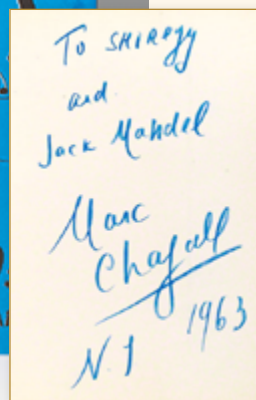 To SHIREGY
and
Jack Mandel
Marc
Chagall
1963
N.Y